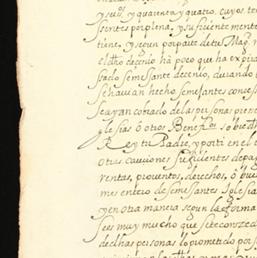 y seis, y quarenta y quatro, cuyos ter
sentes porplena, y suficientemente
tiene, y segun por parte de tu Mag.
el dho decenio há poco que ha expira
ssado semessante decenio, durando
se havian hecho semesantes concess
se ayan cobrado de las personas
glesias ó otros Benef.os
Rey tu Padre, y por ti en el
otras cauciones sufizientes de pa
rentas, proventos, derechos, ó
mes entero de semesantes Iglesia
y en otra manera segun la forma
sees muy mucho que se te conceda
de dhas personas lo prometido por